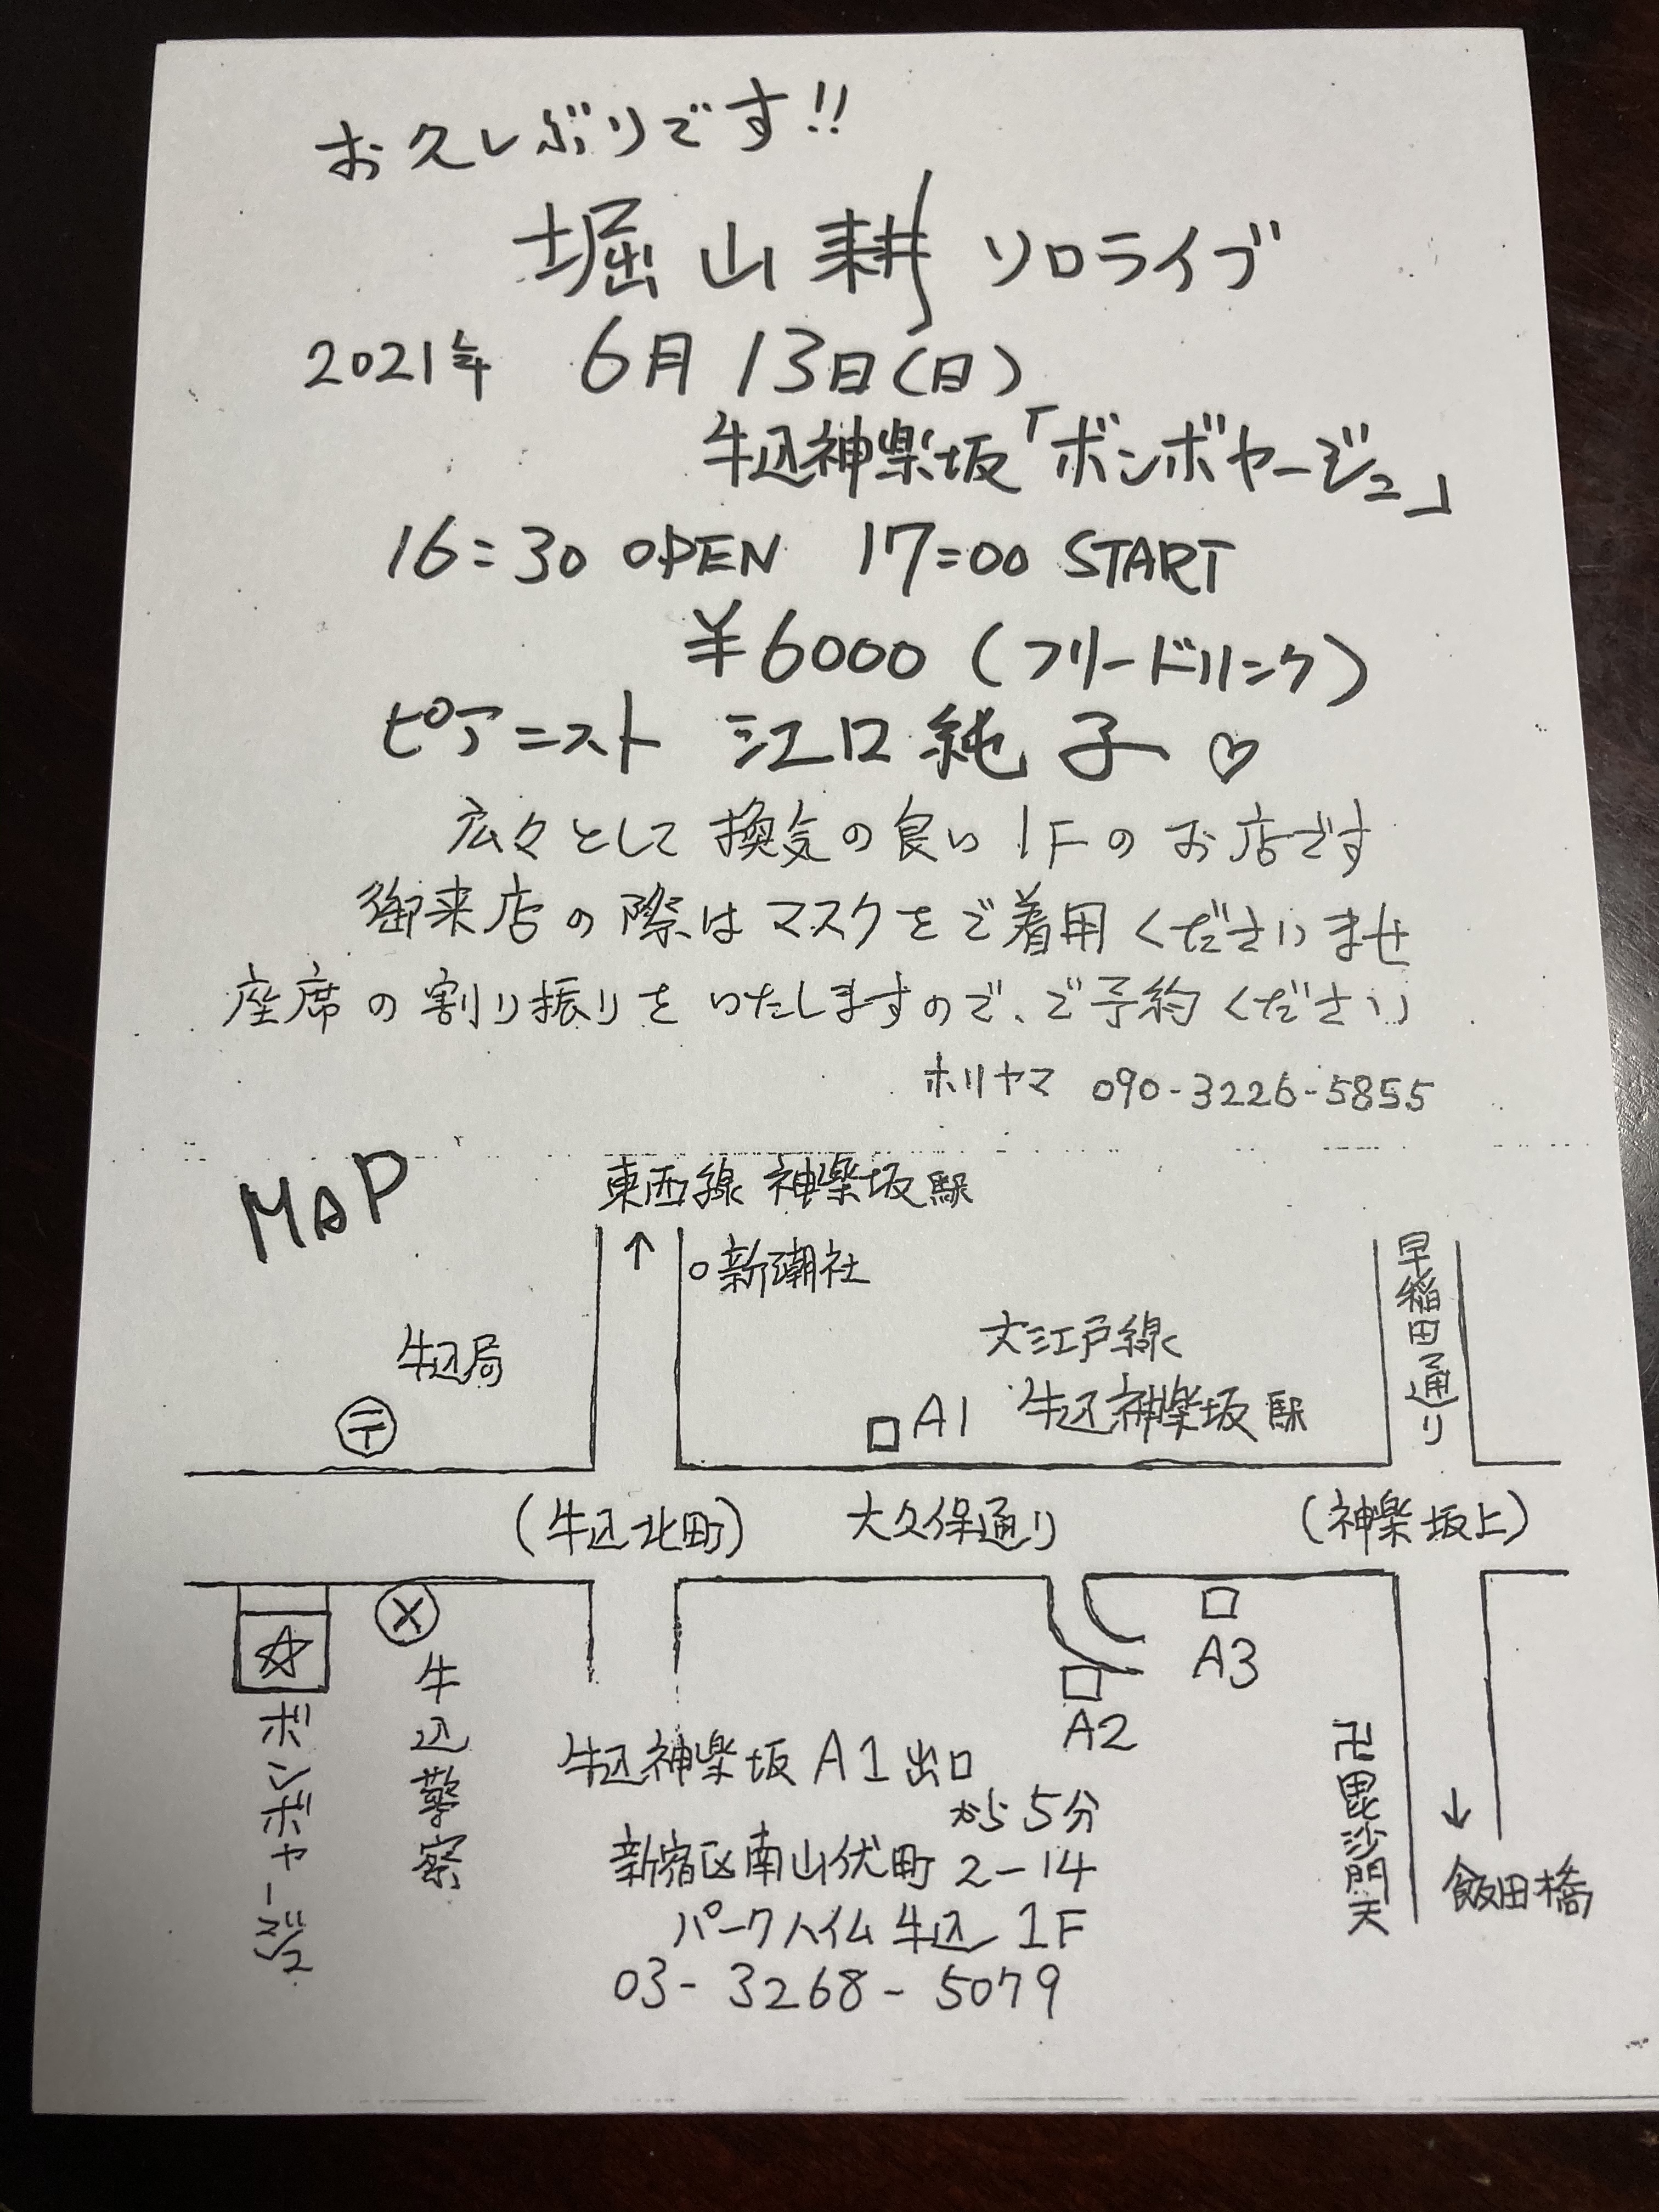 お久しぶりです!!
堀山耕 ソロライブ
2021年 6月13日(日)
牛込神楽坂「ボンボヤージュ」
16:30 OPEN 17:00 START
¥6000 (フリードリンク)
ピアニスト 江口純子♡
広々として換気の良い1Fのお店です
御来店の際はマスクをご着用くださいませ
座席の割り振りをいたしますので、ご予約ください
ホリヤマ 090-3226-5855
MAP
東西線 神楽坂駅
↑
○新潮社
早稲田通り
牛込局
〒
大江戸線
A1 牛込神楽坂駅
(牛込北町) 大久保通り (神楽坂上)
☆
ボンボヤージュ
X
牛込警察
A3
A2
牛込神楽坂 A1出口
から5分
新宿区南山伏町 2-14
パークハイム牛込 1F
03-3268-5079
卍毘沙門天
↓
飯田橋